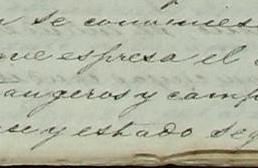 n se convinies
que espresa el
angeros y camp
ase y estado seg